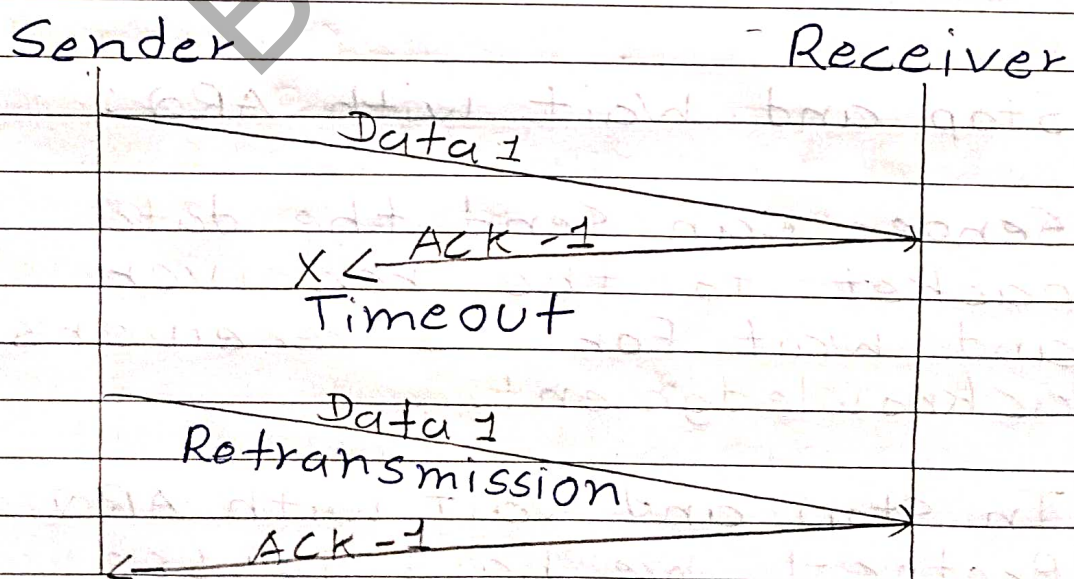 Sender Receiver
Data 1
ACK-1
X
Timeout
Data 1
Retransmission
ACK-1